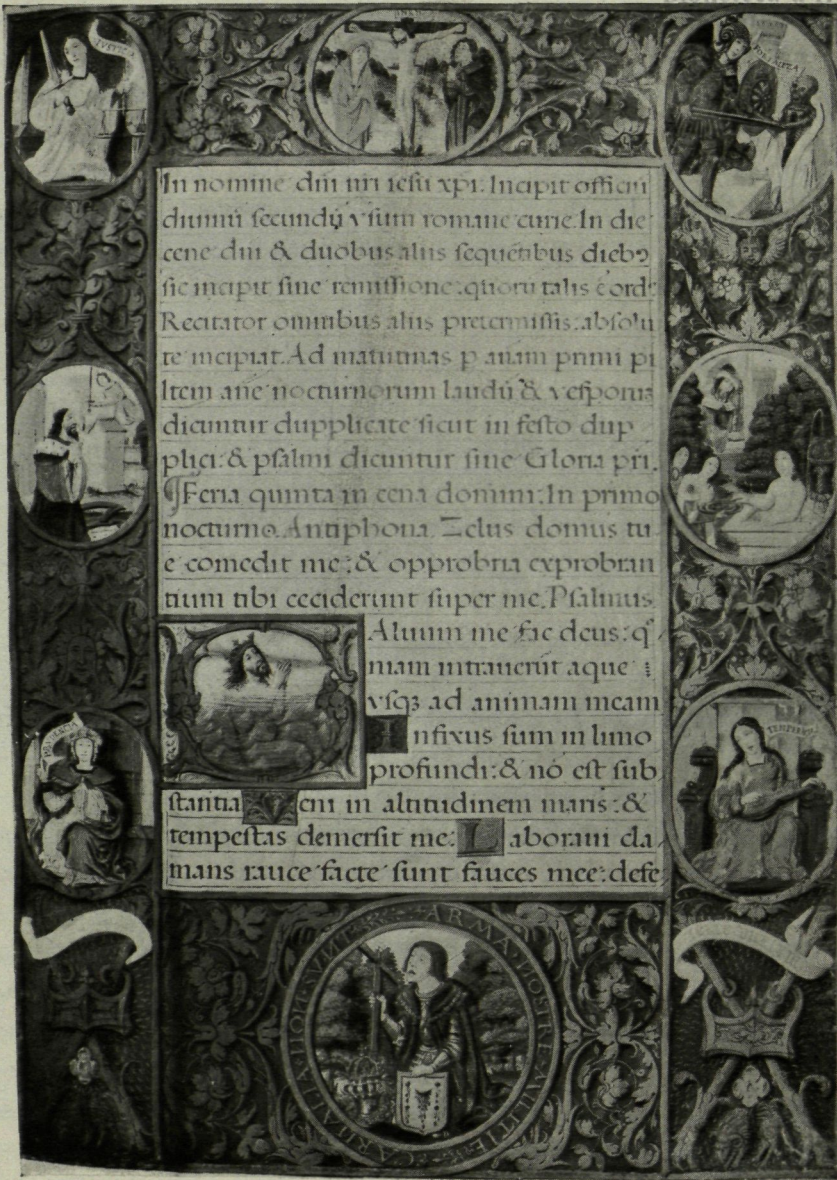 In nomine dñi nri iesu xpi. Incipit officiũ
diuinũ secundũ vsum romane curie. In die
cene dñi & duobus aliis sequẽtibus diebꝰ
sic incipit sine remissione: quorũ talis ẽ ordo
Recitator omnibus aliis pretermissis: absolu
te incipiat. Ad matutinas
Item añe nocturnorum laudũ & vesporũ
dicuntur dupplicate sicut in festo dup
plici: & psalmi dicuntur sine Gloria pri.
¶Feria quinta in cena domini: In primo
nocturno. Antiphona. Zelus domus tu
e comedit me: & opprobria exprobran
tium tibi ceciderunt super me. Psalmus.
Aluum me fac deus: qm̃
niam intrauerũt aque
vsqꝫ ad animam meam
Infixus sum in limo
profundi: & nõ est sub
stantia Veni in altitudinem maris: &
tempestas demersit me: Laboraui cla
mans rauce facte sunt fauces mee: defe
ARMA NOSTRE MILITIE CARNALIA NON SUNT